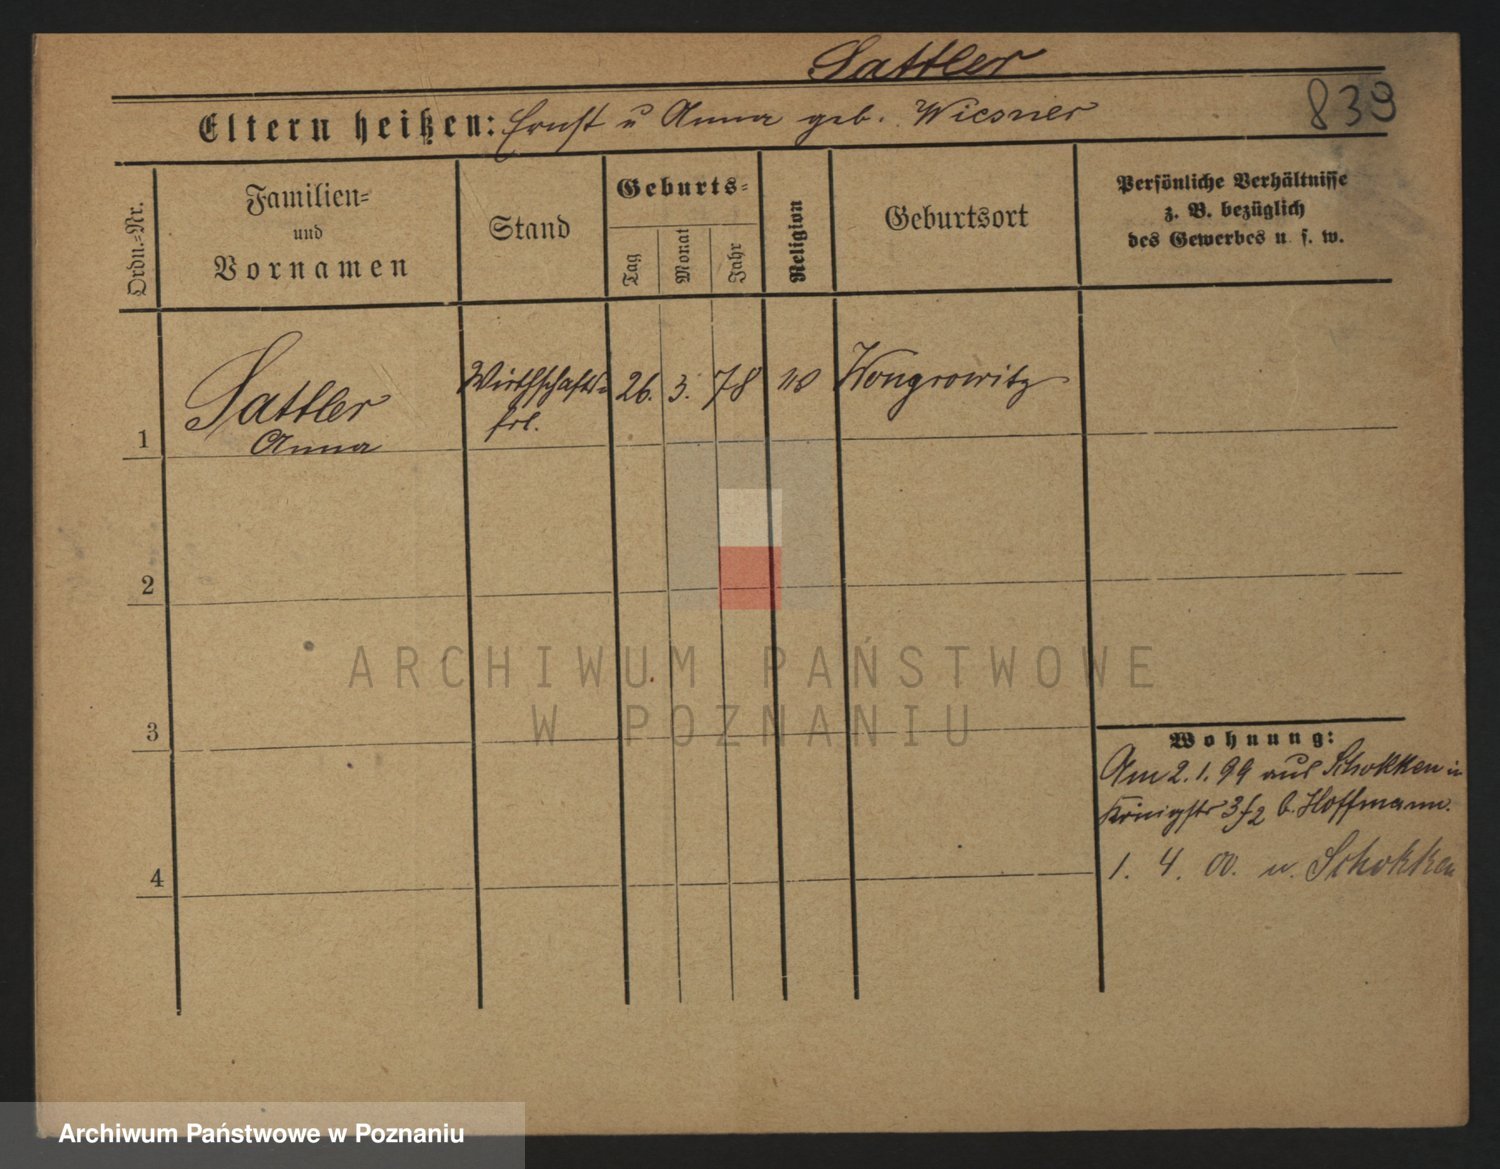 Sattler
Eltern heißen: Ernst u Anna geb. Wiesner
839
Ordn.-Nr.
Familien-
und
Vornamen
Stand
Geburts-
Tag
Monat
Jahr
Religion
Geburtsort
Persönliche Verhältnisse
z. B. bezüglich
des Gewerbes u. s. w.
1
Sattler
Anna
Wirthschafts-
frl.
26.
3.
78
Wongrowitz
2
3
4
ARCHIWUM PAŃSTWOWE
W POZNANIU
Wohnung:
Am 2. 1. 99 aus Schokken in
Königstr 3/2 b. Hoffmann.
1. 4. 00. n. Schokken
Archiwum Państwowe w Poznaniu